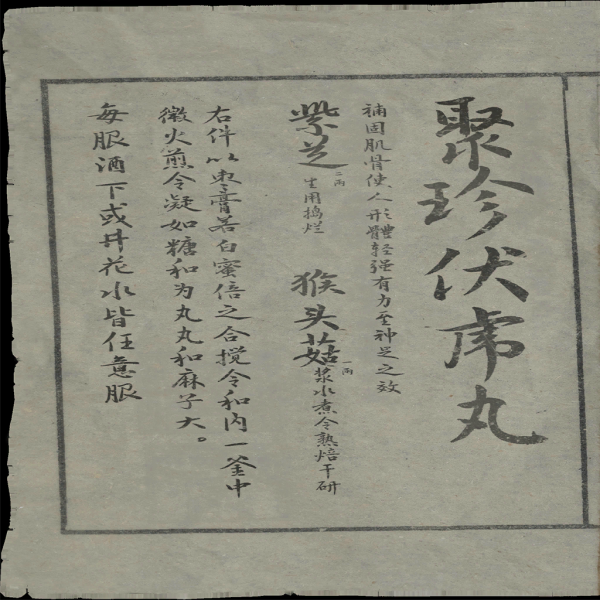 聚珍伏虎丸
補固肌骨使人形體轻强有力至神足之效
紫芝二两生用搗烂 猴头菇一两浆水煮令熟焙干研
右件以枣膏若白蜜倍之合搅令和内一釜中
微火煎令凝如糖和为丸丸和麻子大。
每服酒下或井花水皆任意服